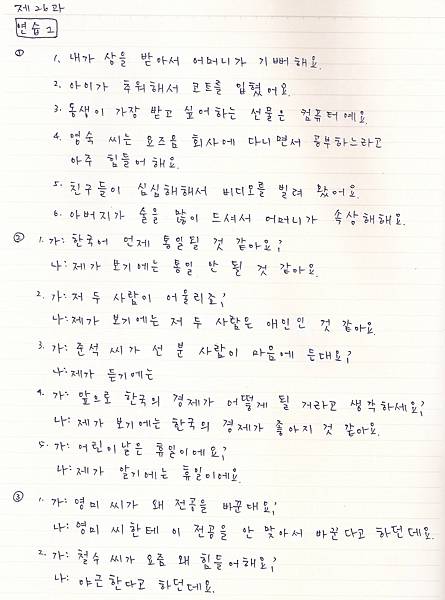 제26과
연습2
① 1. 내가 상을 받아서 어머니가 기뻐해요.
2. 아이가 추워해서 코트를 입혔어요.
3. 동생이 가장 받고 싶어하는 선물은 컴퓨터예요.
4. 영숙 씨는 요즈음 회사에 다니면서 공부하느라고
아주 힘들어 해요.
5. 친구들이 심심해해서 비디오를 빌려 왔어요.
6. 아버지가 술을 많이 드셔서 어머니가 속상해해요.
② 1. 가: 한국어 언제 통일될 것 같아요?
나: 제가 보기에는 통일 안 될 것 같아요.
2. 가: 저 두 사람이 어울리죠?
나: 제가 보기에는 저 두 사람은 애인인 것 같아요.
3. 가: 준석 씨가 선 본 사람이 마음에 든대요?
나: 제가 듣기에는
4. 가: 앞으로 한국의 경제가 어떻게 될 거라고 생각하세요?
나: 제가 보기에는 한국의 경제가 좋아지 것 같아요.
5. 가: 어린이날은 휴일이에요?
나: 제가 알기에는 휴일이에요.
③ 1. 가: 영미 씨가 왜 전공을 바꾼대요?
나: 영미 씨한테 이 전공을 안 맞아서 바꾼다고 하던데요.
2. 가: 철수 씨가 요즘 왜 힘들어해요?
나: 야근한다고 하던데요.